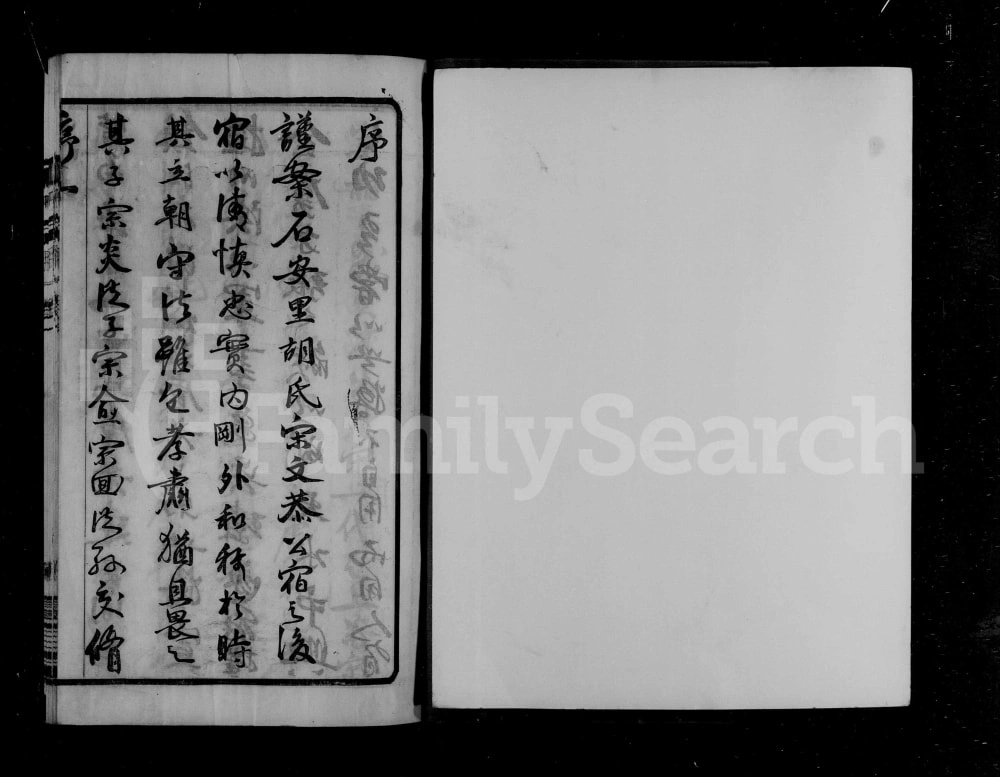 序
謹案石安里胡氏宋文恭公宿之後
宿以清慎忠實内剛外和稱於時
其立朝守法雖包孝肅猶且畏之
其子宗炎從子宗愈宗回從孫交脩
序一
FamilySearch